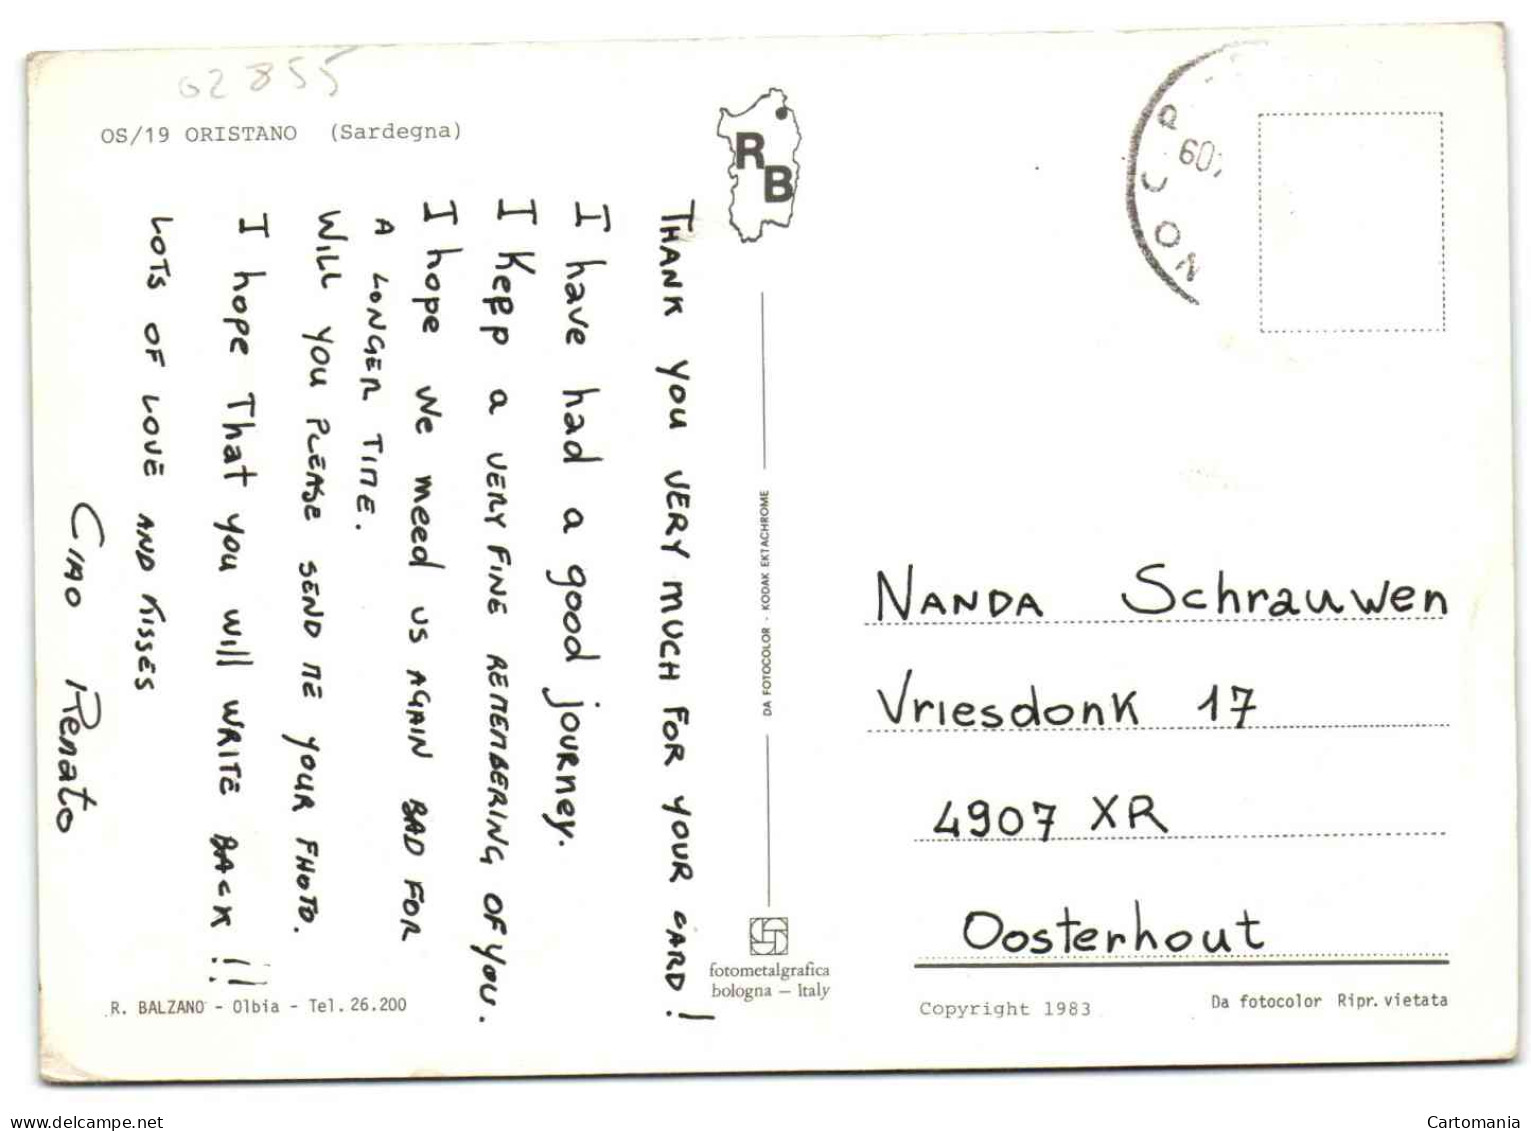 02855
OS/19 ORISTANO (Sardegna)
THANK YOU VERY MUCH FOR YOUR CARD!
I have had a good journey.
I Kepp a VERY FINE REMEMBERING OF YOU.
I hope We meed us AGAIN BAD FOR
A LONGER TIME.
WILL YOU PLEASE SEND ME YOUR FHOTO.
I hope That you will WRITE BACK!!
LOTS OF LOVE AND KISSES
CIAO Renato
R. BALZANO - Olbia - Tel. 26.200
RB
DA FOTOCOLOR - KODAK EKTACHROME
fotometalgrafica
bologna — Italy
NANDA Schrauwen
Vriesdonk 17
4907 XR
Oosterhout
Copyright 1983
Da fotocolor Ripr. vietata
www.delcampe.net
Cartomania